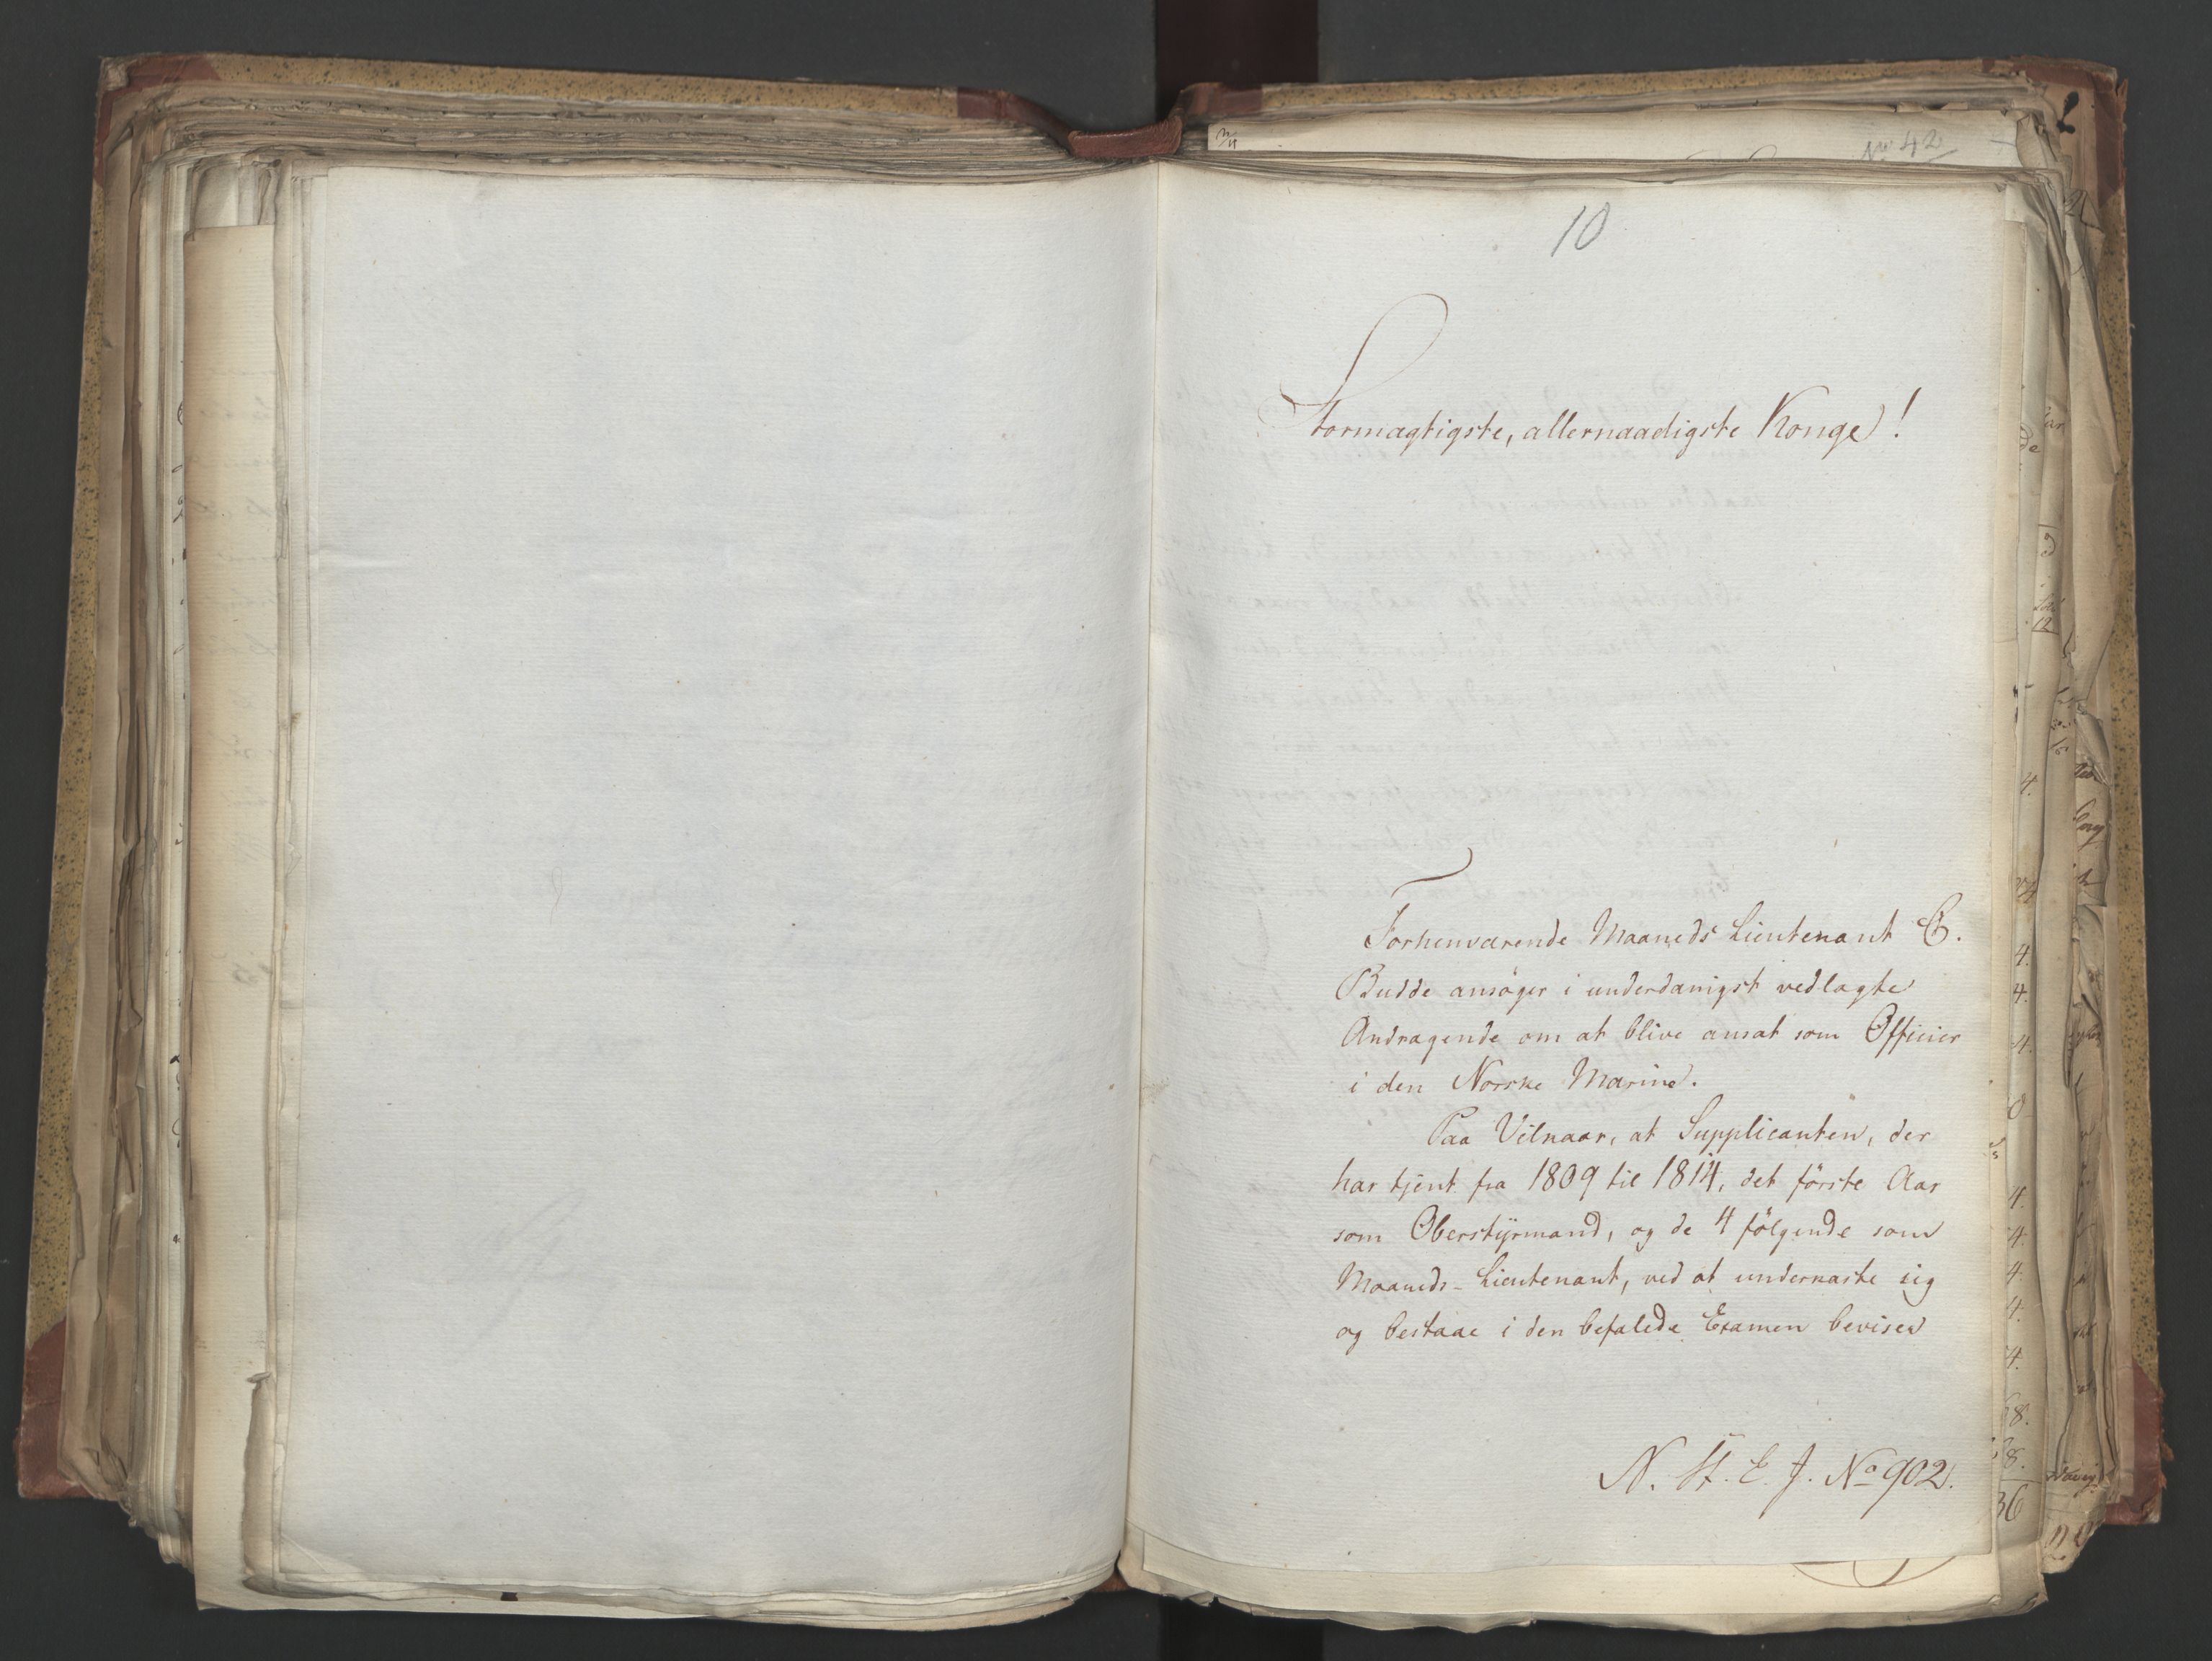 No 42
10
Stormagtigste, allernaadigste Konge!
Forhenværende Maaneds Lieutenant C.
Budde ansøger i underdanigst vedlagte
Andragende om at blive ansat som Officier
i den Norske Marine.
Paa Vilkaar, at Supplicanten, der
har tjent fra 1809 til 1814, det förste Aar
som Oberstÿrmand, og de 4 fölgende som
Maaneds-Lieutenant, ved at underkaste sig
og bestaae i den befalede Examen beviser
N. St. E. J. No 902.